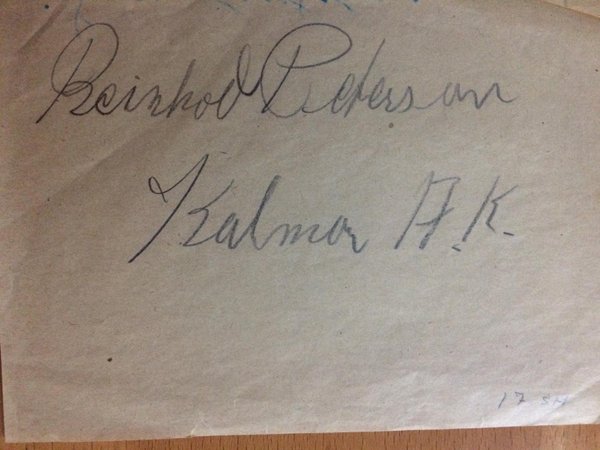 Reinhol Peterson
Kalmar A.K.
17 SM